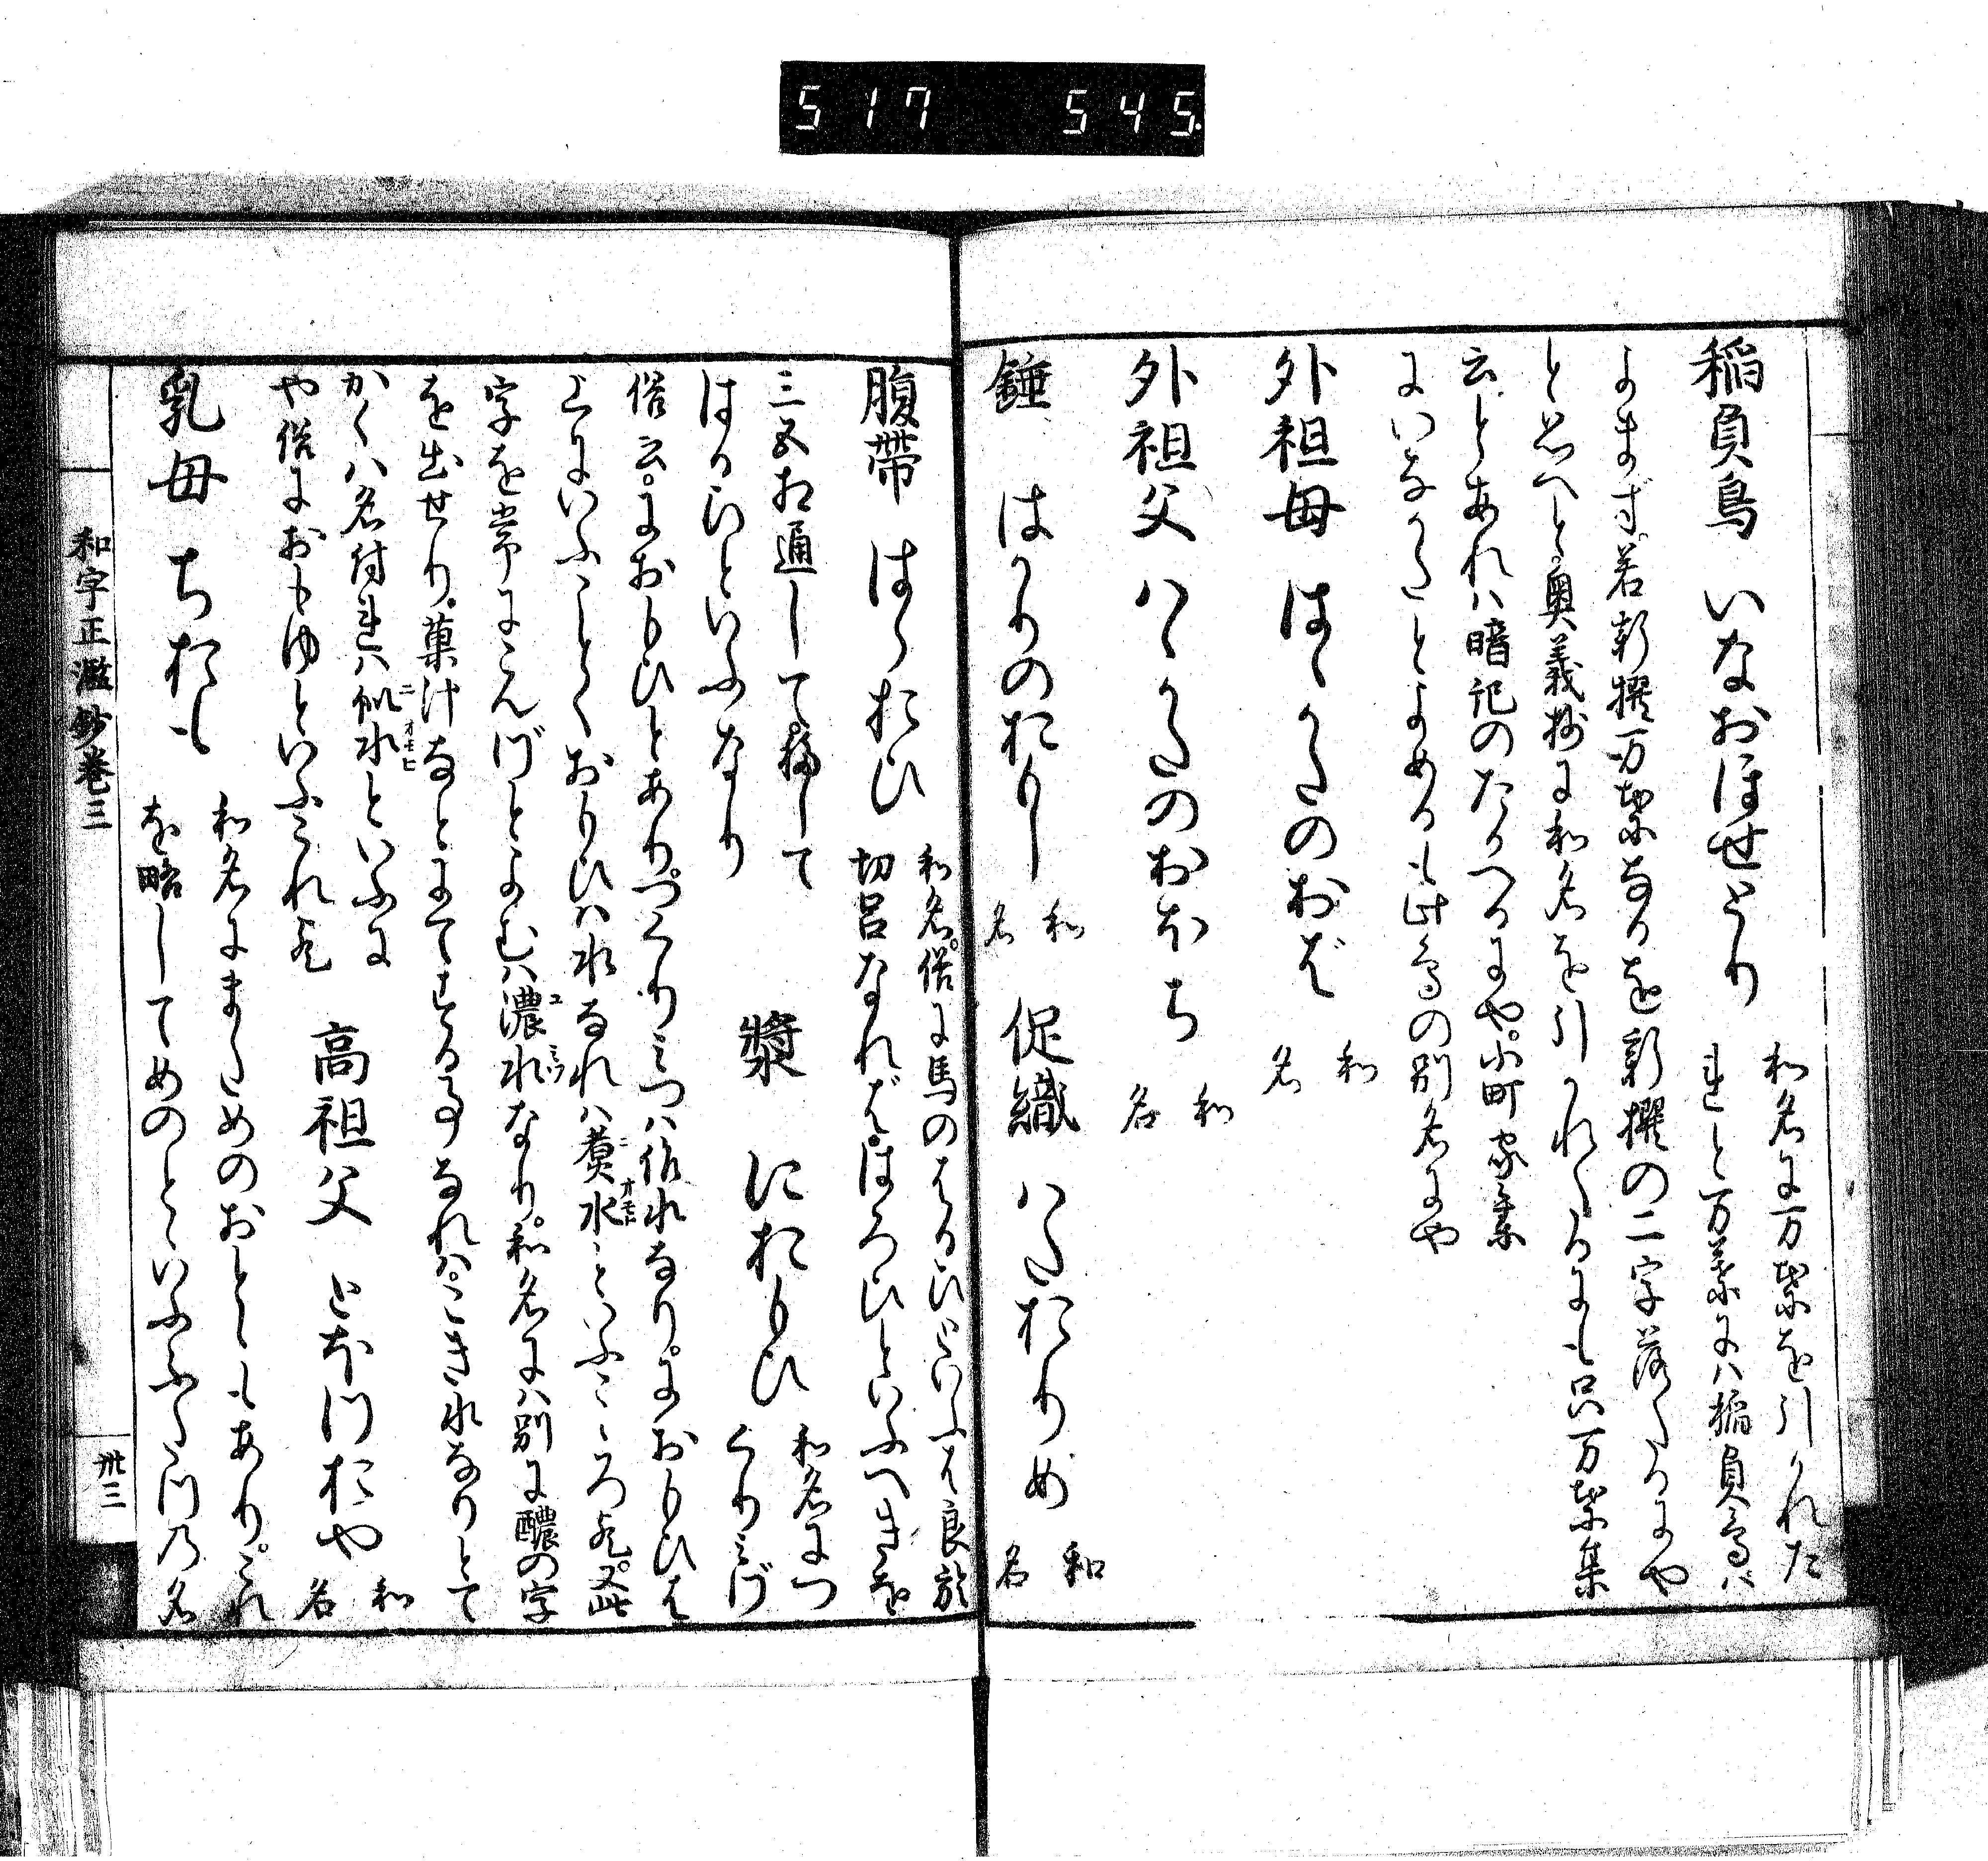 517 545
稲負鳥 いなおほせとり
和名に万葉を引かれた
れと万葉には稲負鳥は
よまず。若新撰万葉なるを新撰の二字落たるにや
と思へと。奥義抄に和名を引かれたるにも只万葉集
云。とあれハ暗記のたかへるにや。小町家集
にいなかたとよめるも此鳥の別名にや
外祖母 はゝかたのおば
和名
外祖父 ハゝかたのおほち
和名
錘 はかりのおもし
和名
促織 ハたおりめ
和名
腹帯 はらおひ
和名。俗に馬のはるひといふは良於
切呂なればはろひといふへきを
三五相通して。轉して
はるひといふなり
漿 におもひ
和名につ
くりみづ
俗云。におもひとあり。つくりミつハ作水なり。におもひは
上にいふことくおもひハ水なれハ煑水といふこゝろ歟。又此
字を常にこんづとよむハ濃水なり。和名にハ別に醲の字
を出せり。菓汁なとにてする事なれハ。こき水なりとて
かくハ名付れハ似水といふに
や俗におもゆといふこれ歟
高祖父 とほつおや
和名
乳母 ちおも
和名にまためのおとゝもあり。これ
を略してめのとゝいふふたつの名
和字正濫鈔巻三
卅三